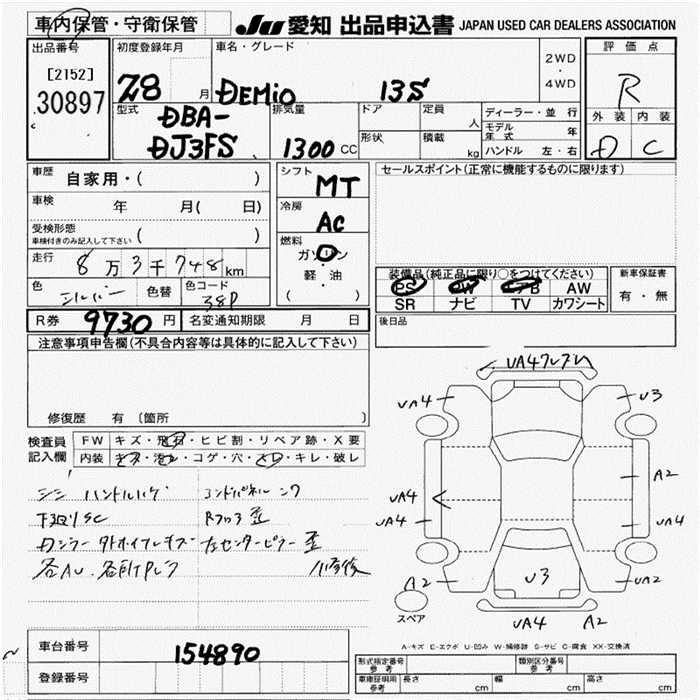 車内保管・守衛保管
JU 愛知 出品申込書 JAPAN USED CAR DEALERS ASSOCIATION
出品番号
[2152]
30897
初度登録年月
28 月
車名・グレード
DEMIO 13S
2WD
・
4WD
評価点
R
外装 内装
D C
型式
DBA-
DJ3FS
排気量
1300 CC
ドア
形状
定員
人
積載
kg
ディーラー・並行
モデル年式 年
ハンドル 左・右
車歴
自家用・( )
車検
年 月( 日)
受検形態
車検付きのみ記入して下さい ( )
走行
8万3千748km
色
シルバー
色替
色コード
38P
R券 9730 円
名変通知期限 月 日
シフト
MT
冷房
AC
燃料
ガソリン
・
軽・油
( )
セールスポイント(正常に機能するものに限ります)
装備品(純正品に限り○をつけてください)
PS PW エアB AW
SR ナビ TV カワシート
新車保証書
有・無
後日品
注意事項申告欄(不具合内容等は具体的に記入して下さい)
修復歴 有 [箇所 ]
検査員
記入欄
FW キズ・飛石・ヒビ割・リペア跡・X要
内装 キズ・汚レ・コゲ・穴・スレ・キレ・破レ
シミ ハンドルハゲ
下廻りSC
各AU
UA4
UA4
U3
A2
UA4
UA4
UA4
A2
U3
UA2
UA4
A2
スペア
A-キズ E-エクボ U-凹み W-補修跡 S-サビ C-腐食 XX-交換済
車台番号
154890
登録番号
形式指定番号
参考
類別区分番号
参考
車庫証明用
参考
長さ cm 幅 cm 高さ cm